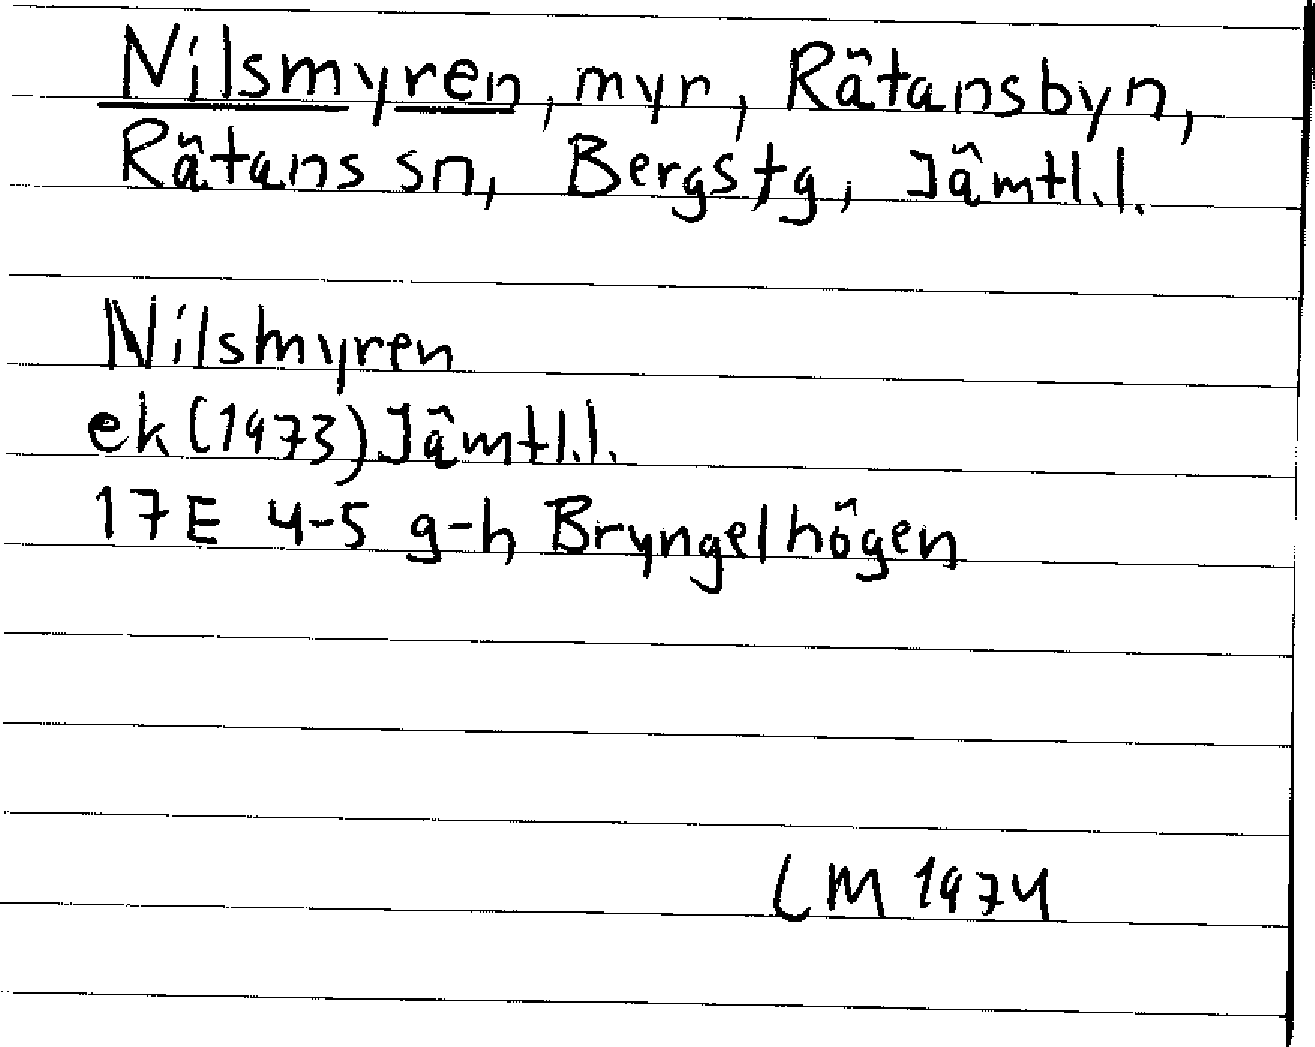 Nilsmyren, myr, Rätansbyn,
Rätans sn, Bergs tg, Jämtl.l.
Nilsmyren
ek (1973) Jämtl.l.
17E 4-5 g-h Bryngelhögen
LM 1974